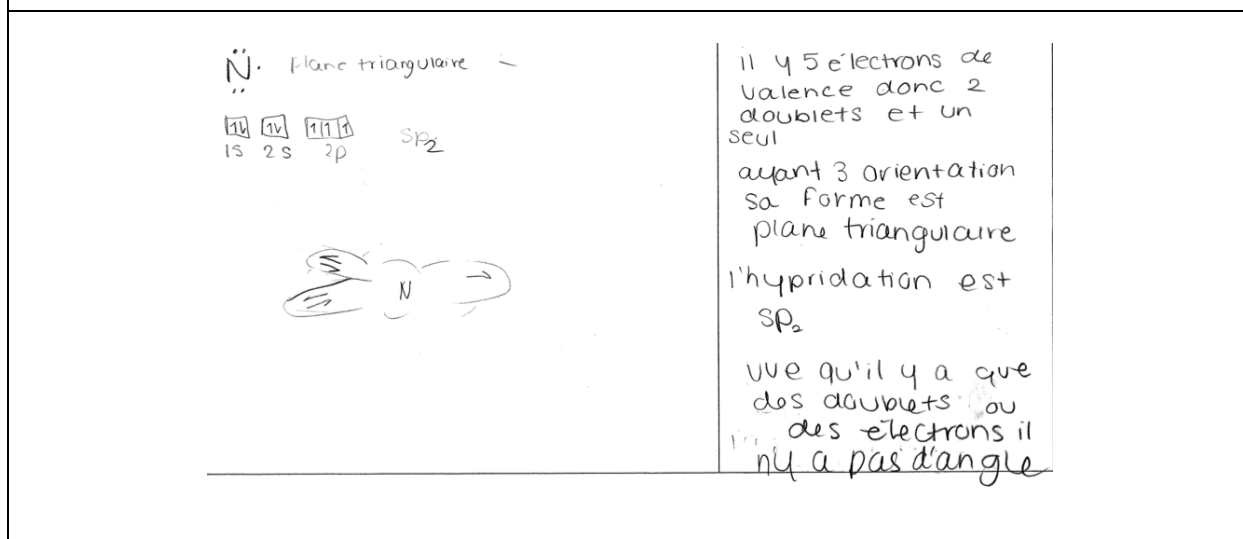 N̈. Plane triangulaire -
1s 2s 2p sp2
N
il y 5 électrons de
valence donc 2
doublets et un
seul
ayant 3 orientation
sa forme est
plane triangulaire
l'hypridation est
sp2
vue qu'il y a que
des doublets ou
des électrons il
ny a pas d'angle